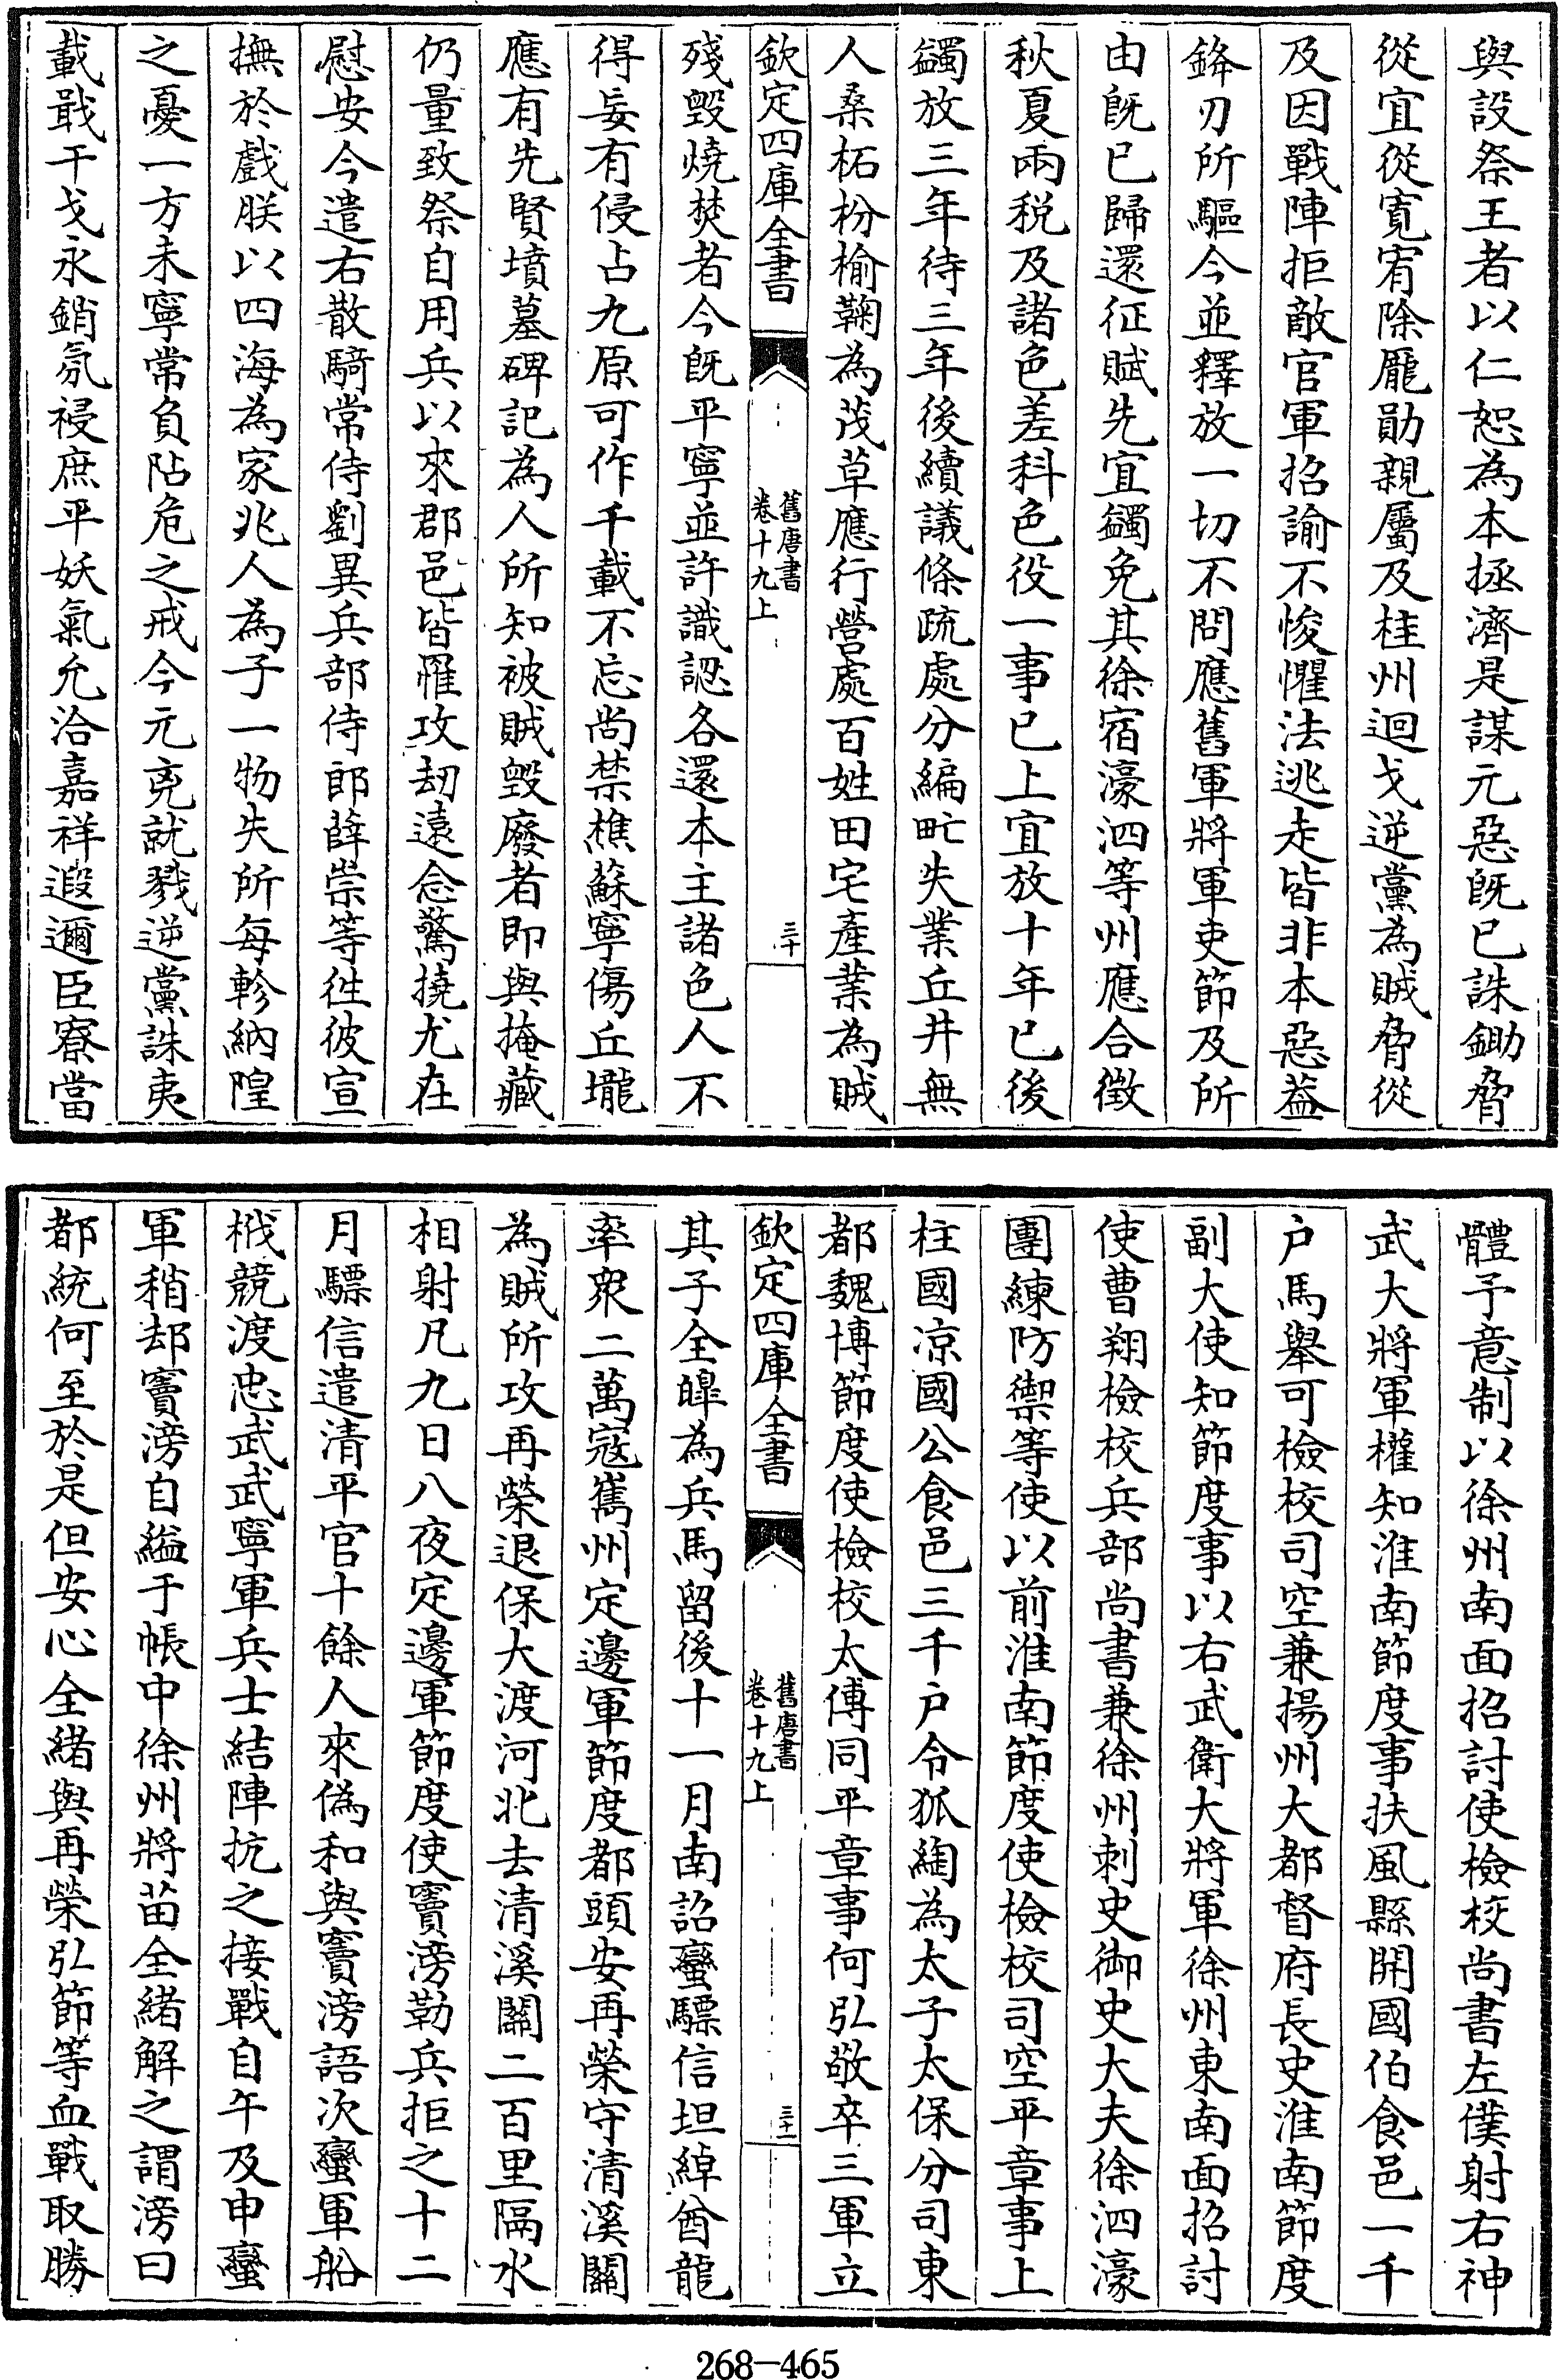 與設祭王者以仁恕為本拯濟是謀元惡既已誅鋤脅
從宜從寛宥除龎勛親屬及桂州迴戈逆黨為賊脅從
及因戰陣拒敵官軍招諭不悛懼法逃走皆非本惡葢
鋒刃所驅今並釋放一切不問應舊軍將軍吏節及所
由既已歸還征賦先宜蠲免其徐宿濠泗等州應合徵
秋夏兩税及諸色差科色役一事已上宜放十年已後
蠲放三年待三年後續議條疏處分編甿失業丘井無
人桑柘枌榆鞠為茂草應行營處百姓田宅產業為賊
欽定四庫全書
舊唐書
卷十九上
三十
殘毀燒焚者今既平寧並許識認各還本主諸色人不
得妄有侵占九原可作千載不忘尚禁樵蘇寧傷丘壠
應有先賢墳墓碑記為人所知被賊毀廢者即與掩藏
仍量致祭自用兵以來郡邑皆罹攻刼遠念驚撓尤在
慰安今遣右散騎常侍劉異兵部侍郎薛崇等徃彼宣
撫於戲朕以四海為家兆人為子一物失所每軫納隍
之憂一方未寧常負阽危之戒今元兇就戮逆黨誅夷
載戢干戈永銷氛祲庶平妖氣允洽嘉祥遐邇臣寮當
體予意制以徐州南面招討使檢校尚書左僕射右神
武大將軍權知淮南節度事扶風縣開國伯食邑一千
户馬舉可檢校司空兼揚州大都督府長史淮南節度
副大使知節度事以右武衛大將軍徐州東南面招討
使曹翔檢校兵部尚書兼徐州刺史御史大夫徐泗濠
團練防禦等使以前淮南節度使檢校司空平章事上
柱國凉國公食邑三千户令狐綯為太子太保分司東
都魏博節度使檢校太傅同平章事何弘敬卒三軍立
欽定四庫全書
舊唐書
卷十九上
三十一
其子全皞為兵馬留後十一月南詔蠻驃信坦綽酋龍
率衆二萬寇嶲州定邊軍節度都頭安再榮守清溪關
為賊所攻再榮退保大渡河北去清溪關二百里隔水
相射凡九日八夜定邊軍節度使竇滂勒兵拒之十二
月驃信遣清平官十餘人來偽和與竇滂語次蠻軍船
栰競渡忠武武寧軍兵士結陣抗之接戰自午及申蠻
軍稍却竇滂自縊于帳中徐州將苗全緒解之謂滂曰
都統何至於是但安心全緒與再榮弘節等血戰取勝
268-465